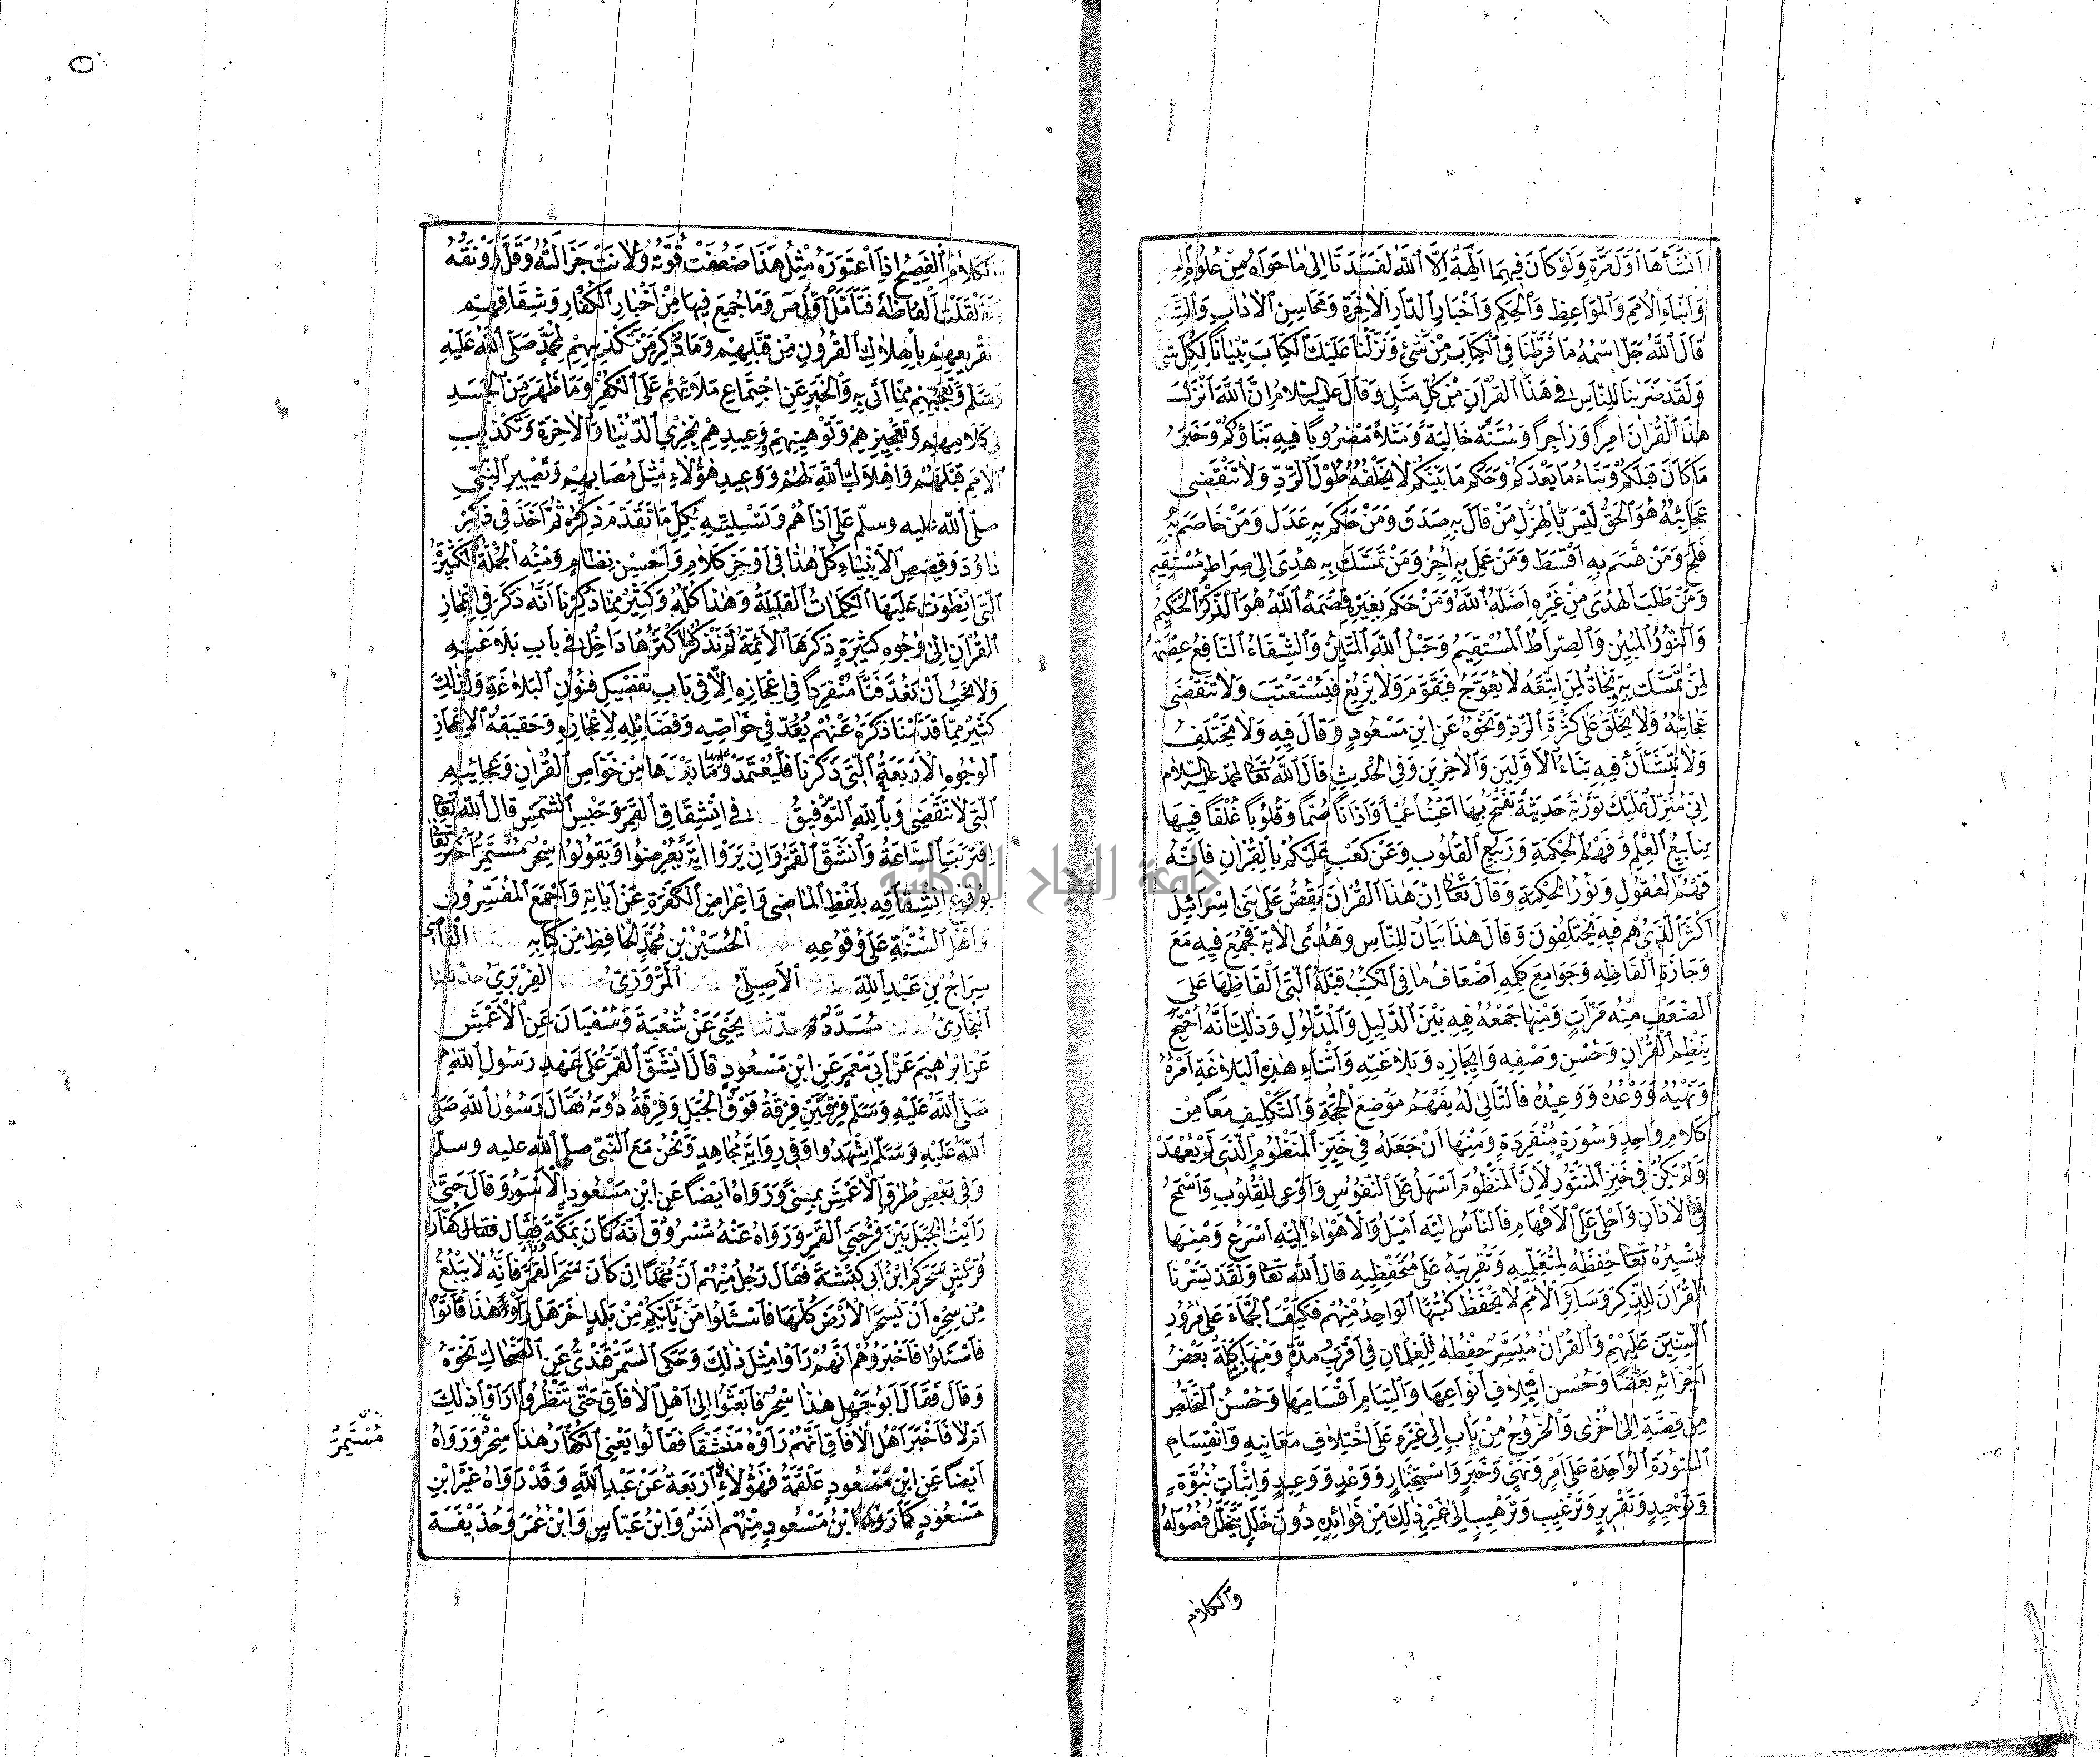 أَنْشَأَهَا أَوَّلَ مَرَّةٍ وَلَوْ كَانَ فِيهِمَا آلِهَةٌ إِلَّا اللَّهُ لَفَسَدَتَا إِلَى مَا حَوَاهُ مِنْ عُلُومِ
وَأَنْبَاءِ الْأُمَمِ وَالْمَوَاعِظِ وَالْحِكَمِ وَأَخْبَارِ الدَّارِ الْآخِرَةِ وَمَحَاسِنِ الْآدَابِ
قَالَ اللَّهُ جَلَّ اسْمُهُ مَا فَرَّطْنَا فِي الْكِتَابِ مِنْ شَيْءٍ وَنَزَّلْنَا عَلَيْكَ الْكِتَابَ تِبْيَانًا لِكُلِّ شَيْ
وَلَقَدْ ضَرَبْنَا لِلنَّاسِ فِي هَذَا الْقُرْآنِ مِنْ كُلِّ مَثَلٍ وَقَالَ عليه السلام إِنَّ اللَّهَ أَنْزَلَ
هَذَا الْقُرْآنَ آمِرًا وَزَاجِرًا وَسُنَّةً خَالِيَةً وَمَثَلًا مَضْرُوبًا فِيهِ نَبَاؤُكُمْ وَخَبَرُ
مَا كَانَ قَبْلَكُمْ وَنَبَاءُ مَا بَعْدَكُمْ وَحُكْمُ مَا بَيْنَكُمْ لَا يُخْلِقُهُ طُولُ الرَّدِّ وَلَا تَنْقَضِي
عَجَائِبُهُ هُوَ الْحَقُّ لَيْسَ بِالْهَزْلِ مَنْ قَالَ بِهِ صَدَقَ وَمَنْ حَكَمَ بِهِ عَدَلَ وَمَنْ خَاصَمَ بِهِ
فَلَجَ وَمَنْ قَسَمَ بِهِ أَقْسَطَ وَمَنْ عَمِلَ بِهِ أُجِرَ وَمَنْ تَمَسَّكَ بِهِ هُدِيَ إِلَى صِرَاطٍ مُسْتَقِيمٍ
وَمَنْ طَلَبَ الْهُدَى مِنْ غَيْرِهِ أَضَلَّهُ اللَّهُ وَمَنْ حَكَمَ بِغَيْرِهِ قَصَمَهُ اللَّهُ هُوَ الذِّكْرُ الْحَكِيمُ
وَالنُّورُ الْمُبِينُ وَالصِّرَاطُ الْمُسْتَقِيمُ وَحَبْلُ اللَّهِ الْمَتِينُ وَالشِّفَاءُ النَّافِعُ عِصْمَةٌ
لِمَنْ تَمَسَّكَ بِهِ وَنَجَاةٌ لِمَنِ اتَّبَعَهُ لَا يَعْوَجُّ فَيُقَوَّمَ وَلَا يَزِيغُ فَيُسْتَعْتَبَ وَلَا تَنْقَضِي
عَجَائِبُهُ وَلَا يَخْلَقُ عَلَى كَثْرَةِ الرَّدِّ وَنَحْوُهُ عَنِ ابْنِ مَسْعُودٍ وَقَالَ فِيهِ وَلَا يَخْتَلِفُ
وَلَا يَتَشَانُّ فِيهِ نَبَاءُ الْأَوَّلِينَ وَالْآخِرِينَ وَفِي الْحَدِيثِ قَالَ اللَّهُ تعالى لمحمد عليه السلام
إِنِّي مُنَزِّلٌ عَلَيْكَ تَوْرَيةً حَدِيثَةً تَفْتَحُ بِهَا أَعْيُنًا عُمْيًا وَآذَانًا صُمًّا وَقُلُوبًا غُلْفًا فِيهَا
يَنَابِيعُ الْعِلْمِ وَفَهْمُ الْحِكْمَةِ وَرَبِيعُ الْقُلُوبِ وَعَنْ كَعْبٍ عَلَيْكُمْ بِالْقُرْآنِ فَإِنَّهُ
فَهْمُ الْعُقُولِ وَنُورُ الْحِكْمَةِ وَقَالَ تَعَالَى إِنَّ هَذَا الْقُرْآنَ يَقُصُّ عَلَى بَنِي إِسْرَائِيلَ
أَكْثَرَ الَّذِي هُمْ فِيهِ يَخْتَلِفُونَ وَقَالَ هَذَا بَيَانٌ لِلنَّاسِ وَهُدًى الْآيَةَ فَجُمِعَ فِيهِ مَعَ
وَجَازَةِ أَلْفَاظِهِ وَجَوَامِعِ كَلِمِهِ أَضْعَافُ مَا فِي الْكُتُبِ قَبْلَهُ الَّتِي أَلْفَاظُهَا عَلَى
الضِّعْفِ مِنْهُ مَرَّاتٍ وَمِنْهَا جَمْعُهُ فِيهِ بَيْنَ الدَّلِيلِ وَالْمَدْلُولِ وَذَلِكَ أَنَّهُ احْتَجَّ
بِنَظْمِ الْقُرْآنِ وَحُسْنِ وَصْفِهِ وَإِيجَازِهِ وَبَلَاغَتِهِ وَأَثْنَاءِ هَذِهِ الْبَلَاغَةِ أَمْرُهُ
وَنَهْيُهُ وَوَعْدُهُ وَوَعِيدُهُ فَالتَّالِي لَهُ يَفْهَمُ مَوْضِعَ الْحُجَّةِ وَالتَّكْلِيفِ مَعًا مِنْ
كَلَامٍ وَاحِدٍ وَسُورَةٍ مُنْفَرِدَةٍ وَمِنْهَا أَنْ جَعَلَهُ فِي حَيِّزِ الْمَنْظُومِ الَّذِي لَمْ يُعْهَدْ
وَلَمْ يَكُنْ فِي حَيِّزِ الْمَنْثُورِ لِأَنَّ الْمَنْظُومَ أَسْهَلُ عَلَى النُّفُوسِ وَأَوْعَى لِلْقُلُوبِ وَأَسْمَحُ
فِي الْآذَانِ وَأَحْلَى عَلَى الْأَفْهَامِ فَالنَّاسُ إِلَيْهِ أَمْيَلُ وَالْأَهْوَاءُ إِلَيْهِ أَسْرَعُ وَمِنْهَا
تَيْسِيرُهُ تَعَالَى حِفْظَهُ لِمُتَعَلِّمِيهِ وَتَقْرِيبَهُ عَلَى مُتَحَفِّظِيهِ قَالَ اللَّهُ تَعَالَى وَلَقَدْ يَسَّرْنَا
الْقُرْآنَ لِلذِّكْرِ وَسَائِرُ الْأُمَمِ لَا يَحْفَظُ كُتُبَهَا الْوَاحِدُ مِنْهُمْ فَكَيْفَ الْجَمَّاءُ عَلَى مُرُورِ
السِّنِينَ عَلَيْهِمْ وَالْقُرْآنُ مُيَسَّرٌ حِفْظُهُ لِلْغِلْمَانِ فِي أَقْرَبِ مُدَّةٍ وَمِنْهَا مُشَاكَلَةُ بَعْضِ
أَجْزَائِهِ بَعْضًا وَحُسْنُ ائْتِلَافِ أَنْوَاعِهَا وَالْتِيَامِ أَقْسَامِهَا وَحُسْنُ التَّخَلُّصِ
مِنْ قِصَّةٍ إِلَى أُخْرَى وَالْخُرُوجُ مِنْ بَابٍ إِلَى غَيْرِهِ عَلَى اخْتِلَافِ مَعَانِيهِ وَانْقِسَامِ
السُّورَةِ الْوَاحِدَةِ عَلَى أَمْرٍ وَنَهْيٍ وَخَبَرٍ وَاسْتِخْبَارٍ وَوَعْدٍ وَوَعِيدٍ وَإِثْبَاتِ نُبُوَّةٍ
وَتَوْحِيدٍ وَتَقْرِيرٍ وَتَرْغِيبٍ وَتَرْهِيبٍ إِلَى غَيْرِ ذَلِكَ مِنْ فَوَائِدِهِ دُونَ خَلَلٍ يَتَخَلَّلُ فُصُولَهُ
والكلام
الْكَلَامُ الْفَصِيحُ إِذَا اعْتَوَرَهُ مِثْلُ هَذَا ضَعُفَتْ قُوَّتُهُ وَلَانَتْ جَزَالَتُهُ وَقَلَّ رَوْنَقُهُ
وَتَقَلْقَلَتْ أَلْفَاظُهُ فَتَأَمَّلْ أَوَّلَ ص وَمَا جُمِعَ فِيهَا مِنْ أَخْبَارِ الْكُفَّارِ وَشِقَاقِهِمْ
وَتَقْرِيعِهِمْ بِإِهْلَاكِ الْقُرُونِ مِنْ قَبْلِهِمْ وَمَا ذُكِرَ مِنْ تَكْذِيبِهِمْ لِمُحَمَّدٍ صَلَّى اللَّهُ عَلَيْهِ
وَسَلَّمَ وَتَعَجُّبِهِمْ مِمَّا أَتَى بِهِ وَالْخَبَرِ عَنِ اجْتِمَاعِ مَلَائِهِمْ عَلَى الْكُفْرِ وَمَا ظَهَرَ مِنَ الْحَسَدِ
فِي كَلَامِهِمْ وَتَعْجِيزِهِمْ وَتَوْهِينِهِمْ وَوَعِيدِهِمْ بِخِزْيِ الدُّنْيَا وَالْآخِرَةِ وَتَكْذِيبِ
الْأُمَمِ قَبْلَهُمْ وَإِهْلَاكِ اللَّهِ لَهُمْ وَوَعِيدِ هَؤُلَاءِ مِثْلَ مُصَابِهِمْ وَتَصْبِيرِ النَّبِيِّ
صلى الله عليه وسلم عَلَى أَذَاهُمْ وَتَسْلِيَتِهِ بِكُلِّ مَا تَقَدَّمَ ذِكْرُهُ ثُمَّ أَخَذَ فِي ذِكْرِ
دَاوُدَ وَقِصَصِ الْأَنْبِيَاءِ كُلُّ هَذَا فِي أَوْجَزِ كَلَامٍ وَأَحْسَنِ نِظَامٍ وَمِنْهُ الْجُمْلَةُ الْكَثِيرَةُ
الَّتِي انْطَوَتْ عَلَيْهَا الْكَلِمَاتُ الْقَلِيلَةُ وَهَذَا كُلُّهُ وَكَثِيرٌ مِمَّا ذَكَرْنَا أَنَّهُ ذُكِرَ فِي إِعْجَازِ
الْقُرْآنِ إِلَى وُجُوهٍ كَثِيرَةٍ ذَكَرَهَا الْأَئِمَّةُ لَمْ نَذْكُرْهَا أَكْثَرُهَا دَاخِلٌ فِي بَابِ بَلَاغَتِهِ
وَلَا يَجِبُ أَنْ يُعَدَّ فَنًّا مُنْفَرِدًا فِي إِعْجَازِهِ إِلَّا فِي بَابِ تَفْصِيلِ فُنُونِ الْبَلَاغَةِ وَكَذَلِكَ
كَثِيرٌ مِمَّا قَدَّمْنَا ذِكْرَهُ عَنْهُمْ يُعَدُّ فِي خَوَاصِّهِ وَفَضَائِلِهِ لَا إِعْجَازِهِ وَحَقِيقَةُ الْإِعْجَازِ
الْوُجُوهِ الْأَرْبَعَةُ الَّتِي ذَكَرْنَا فَلْيُعْتَمَدْ عَلَيْهَا وَمَا بَعْدَهَا مِنْ خَوَاصِ الْقُرْآنِ وَعَجَائِبِهِ
الَّتِي لَا تَنْقَضِي وَبِاللَّهِ التَّوْفِيقُ فِي انْشِقَاقِ الْقَمَرِ وَحَبْسِ الشَّمْسِ قَالَ اللَّهُ تَعَالَى
اقْتَرَبَتِ السَّاعَةُ وَانْشَقَّ الْقَمَرُ وَإِنْ يَرَوْا آيَةً يُعْرِضُوا وَيَقُولُوا سِحْرٌ مُسْتَمِرٌّ أَخْبَرَ تَعَالَى
بِوُقُوعِ انْشِقَاقِهِ بِلَفْظِ الْمَاضِي وَإِعْرَاضِ الْكَفَرَةِ عَنْ آيَاتِهِ وَأَجْمَعَ الْمُفَسِّرُونَ
وَأَهْلُ السُّنَّةِ عَلَى وُقُوعِهِ الْحُسَيْنُ بْنُ مُحَمَّدٍ الْحَافِظُ مِنْ كِتَابِهِ الْقَاضِي
سِرَاجُ بْنُ عَبْدِ اللَّهِ الْأَصِيلِيُّ الْمَرْوَزِيُّ الْفِرَبْرِيُّ حدثنا
الْبُخَارِيُّ مُسَدَّدٌ حدثنا يَحْيَى عَنْ شُعْبَةَ وَسُفْيَانَ عَنِ الْأَعْمَشِ
عَنْ إِبْرَاهِيمَ عَنْ أَبِي مَعْمَرٍ عَنِ ابْنِ مَسْعُودٍ قَالَ انْشَقَّ الْقَمَرُ عَلَى عَهْدِ رَسُولِ اللَّهِ
صَلَّى اللَّهُ عَلَيْهِ وَسَلَّمَ فِرْقَتَيْنِ فِرْقَةً فَوْقَ الْجَبَلِ وَفِرْقَةً دُونَهُ فَقَالَ رَسُولُ اللَّهِ صَلَّى
اللَّهُ عَلَيْهِ وَسَلَّمَ اشْهَدُوا وَفِي رِوَايَةِ مُجَاهِدٍ وَنَحْنُ مَعَ النَّبِيِّ صلى الله عليه وسلم
وَفِي بَعْضِ طُرُقِ الْأَعْمَشِ بِمِنًى وَرَوَاهُ أَيْضًا عَنِ ابْنِ مَسْعُودٍ الْأَسْوَدُ وَقَالَ حَتَّى
رَأَيْتُ الْجَبَلَ بَيْنَ فُرْجَتَيِ الْقَمَرِ وَرَوَاهُ عَنْهُ مَسْرُوقٌ أَنَّهُ كَانَ بِمَكَّةَ فَقَالَ فَقَالَ كُفَّارُ
قُرَيْشٍ سَحَرَكُمُ ابْنُ أَبِي كَبْشَةَ فَقَالَ رَجُلٌ مِنْهُمْ أَنَّ مُحَمَّدًا إِنْ كَانَ سَحَرَ الْقَمَرَ فَإِنَّهُ لَا يَبْلُغُ
مِنْ سِحْرِهِ أَنْ يَسْحَرَ الْأَرْضَ كُلَّهَا فَاسْئَلُوا مَنْ يَأْتِيكُمْ مِنْ بَلَدٍ آخَرَ هَلْ رَأَوْا هَذَا فَأَتَوْا
فَاسْئَلُوا فَأَخْبَرُوهُمْ أَنَّهُمْ رَأَوْا مِثْلَ ذَلِكَ وَحَكَى السَّمَرْقَنْدِيُّ عَنِ الضَّحَّاكِ نَحْوَهُ
وَقَالَ فَقَالَ أَبُو جَهْلٍ هَذَا سِحْرٌ فَابْعَثُوا إِلَى أَهْلِ الْآفَاقِ حَتَّى تَنْظُرُوا أَرَأَوْا ذَلِكَ
أَمْ لَا فَأَخْبَرَ أَهْلُ الْآفَاقِ أَنَّهُمْ رَأَوْهُ مُنْشَقًّا فَقَالُوا يَعْنِي الْكُفَّارَ هَذَا سِحْرٌ وَرَوَاهُ
مُسْتَمِرٌّ
أَيْضًا عَنِ ابْنِ مَسْعُودٍ عَلْقَمَةُ فَهَؤُلَاءِ أَرْبَعَةٌ عَنْ عَبْدِ اللَّهِ وَقَدْ رَوَاهُ غَيْرُ ابْنِ
مَسْعُودٍ كَمَا رَوَاهُ ابْنُ مَسْعُودٍ مِنْهُمْ أَنَسٌ وَابْنُ عَبَّاسٍ وَابْنُ عُمَرَ وَحُذَيْفَةَ
جامعة النجاح الوطنية